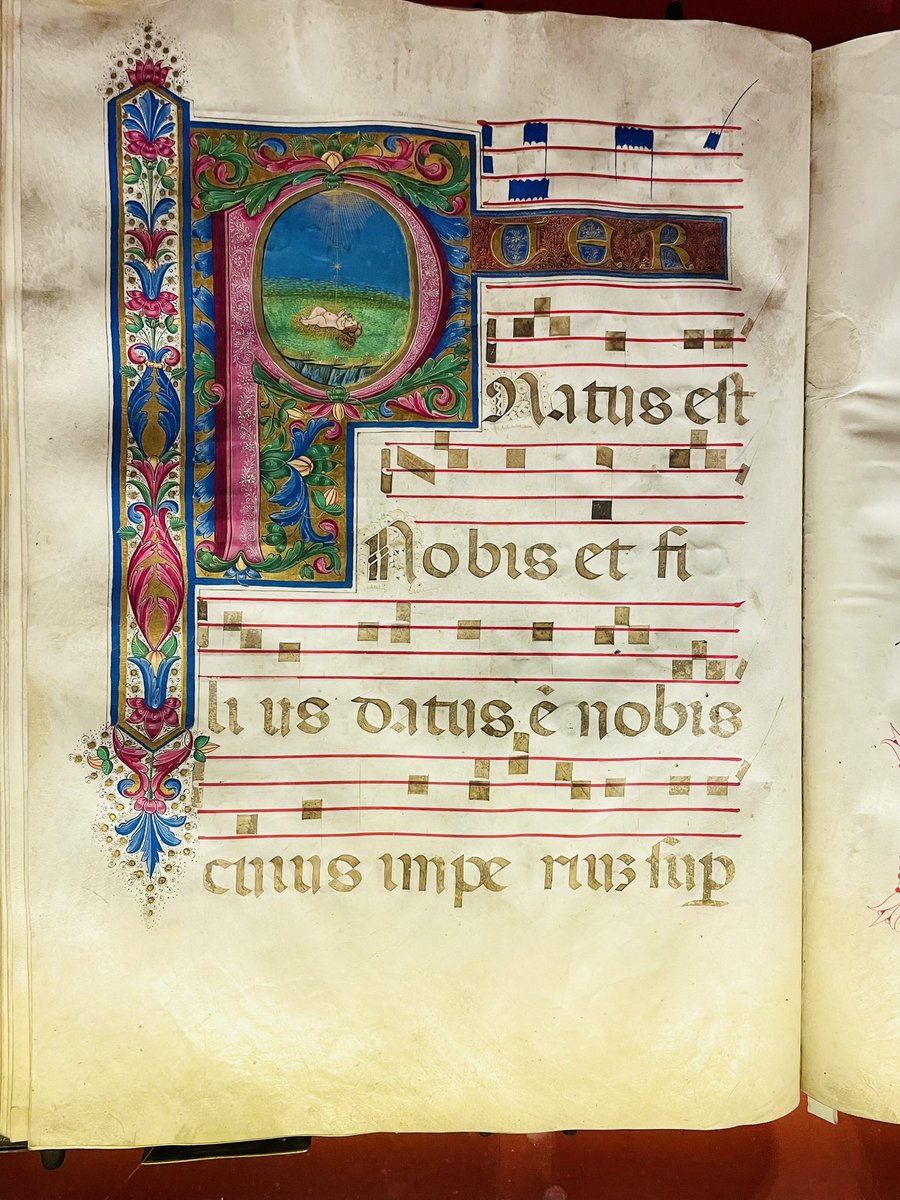 PUER
Natus est
Nobis et fi
li us datus ē nobis
cuius impe riuʒ sup